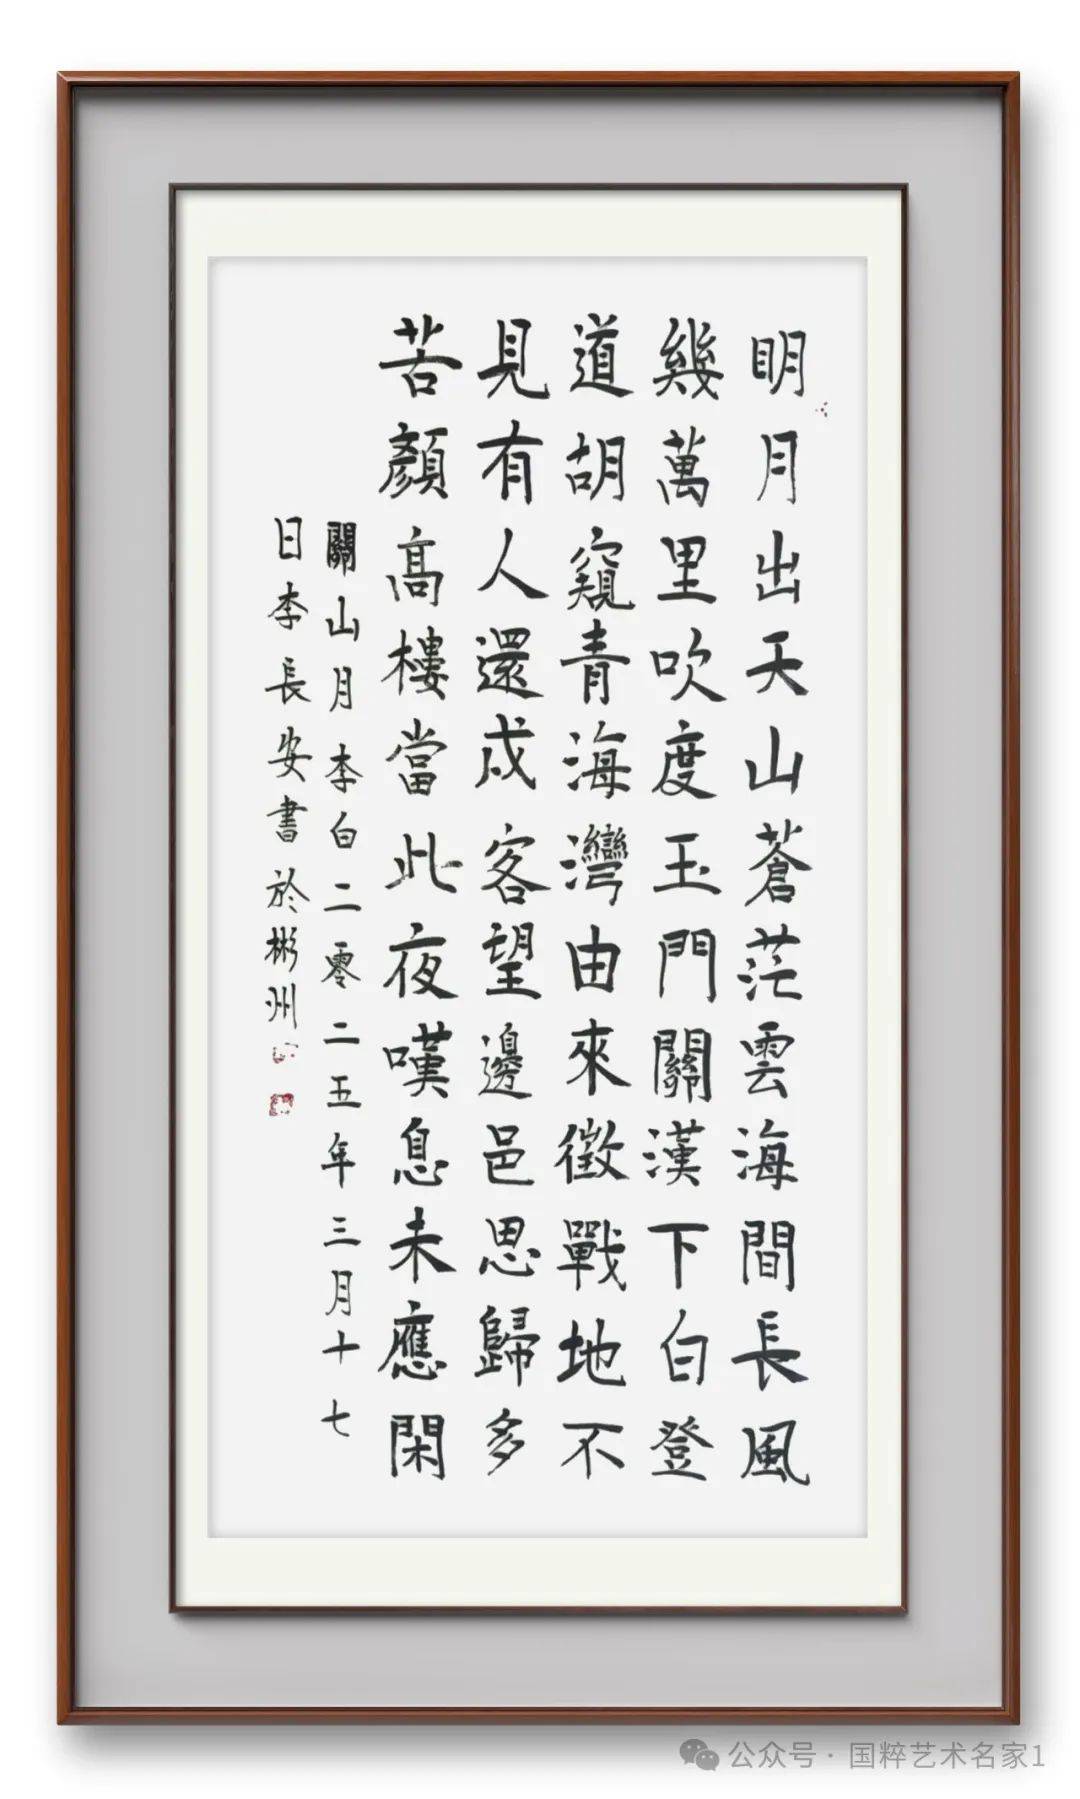 明月出天山蒼茫雲海間長風
幾萬里吹度玉門關漢下白登
道胡窺青海灣由來徵戰地不
見有人還戍客望邊邑思歸多
苦顏高樓當此夜嘆息未應閑
關山月李白二零二五年三月十七
日李長安書於彬州
公众号·国粹艺术名家1